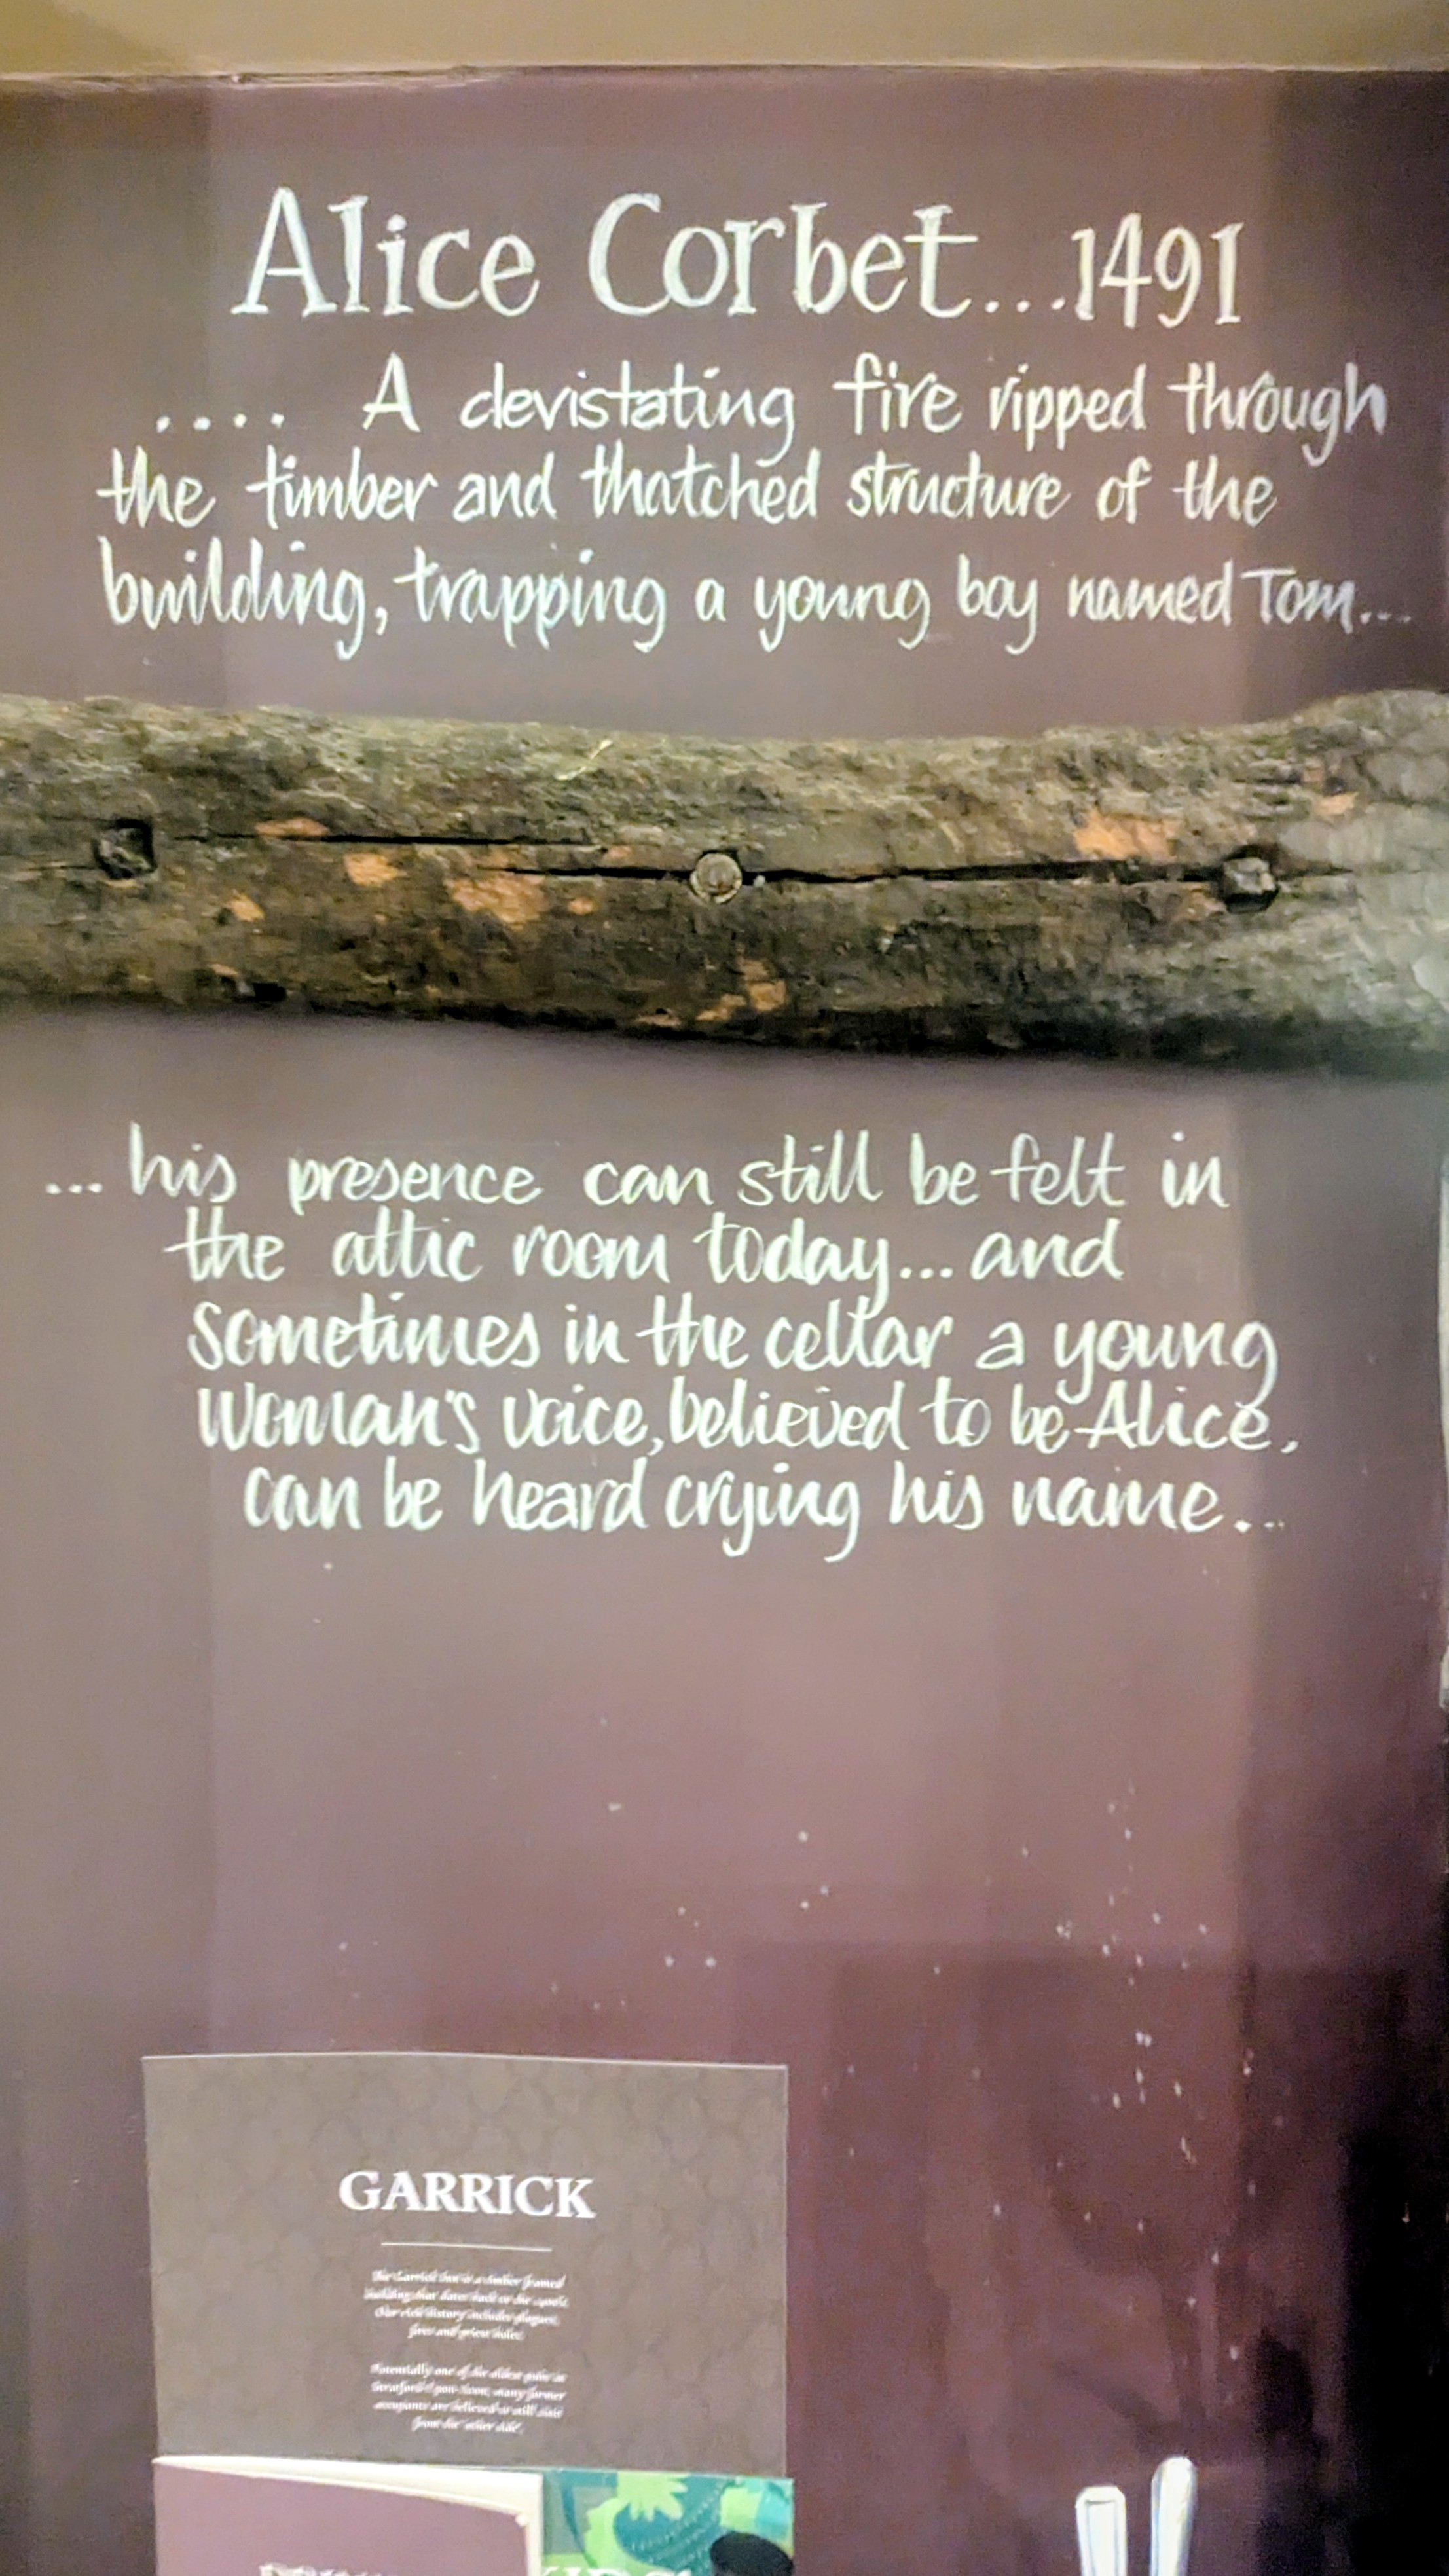 Alice Corbet...1491
.... A devistating fire ripped through
the timber and thatched structure of the
building, trapping a young boy named Tom...
... his presence can still be felt in
the attic room today... and
sometimes in the cellar a young
Woman's voice, believed to be Alice,
can be heard crying his name...
GARRICK
The Garrick Inn is a timber framed
building that dates back to the
Our rich history includes plagues,
fires and priest holes.
Potentially one of the oldest pubs in
Stratford-Upon-Avon, many former
occupants are believed to still visit
from the 'other side'.